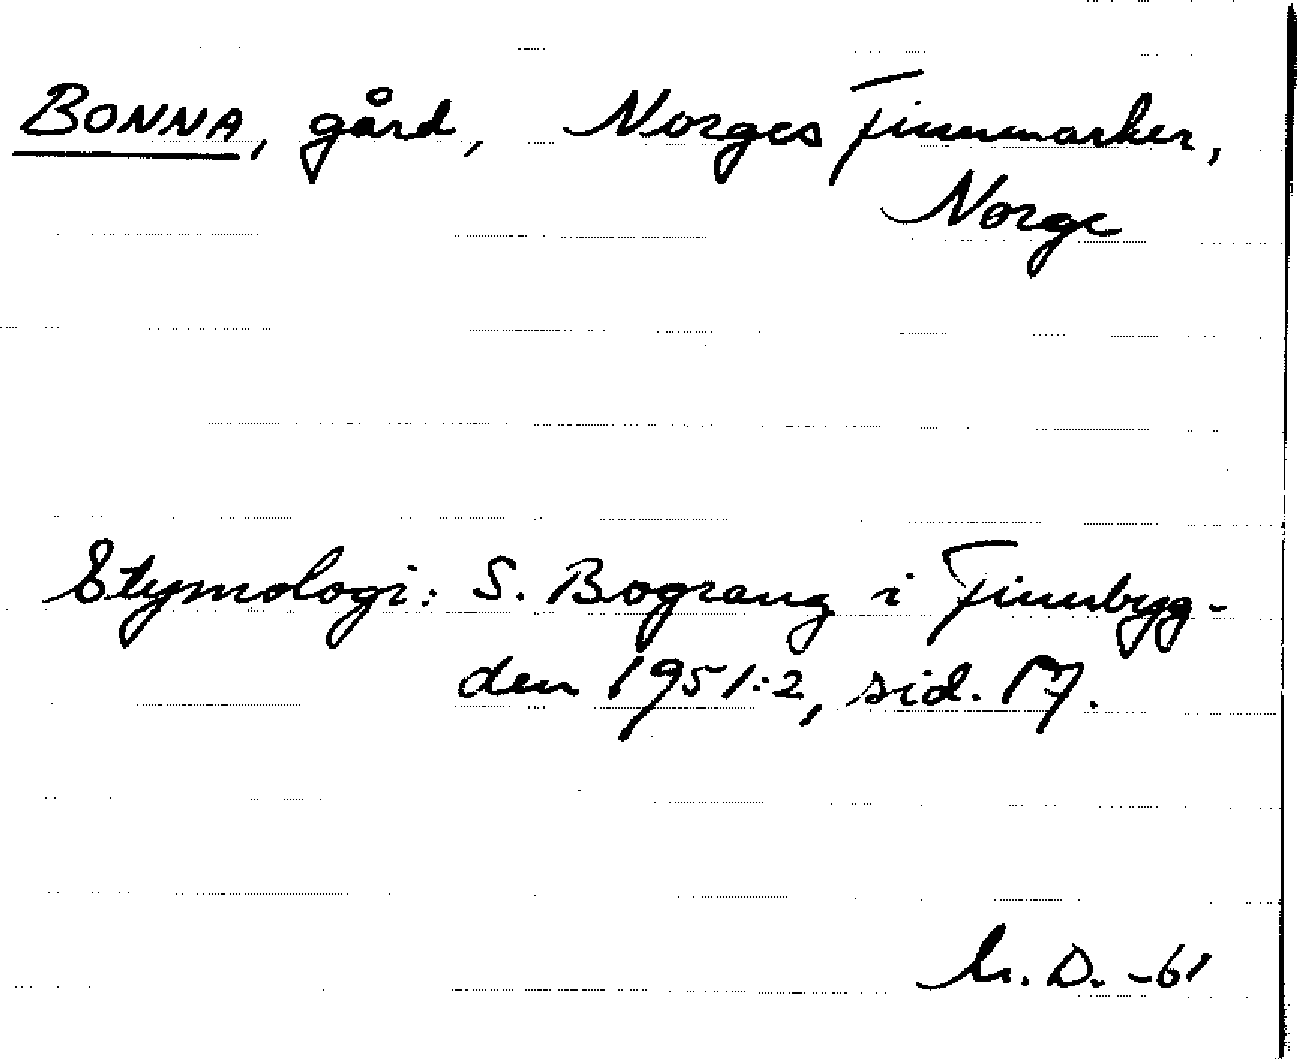 BONNA, gård, Norges Finnmarker,
Norge
Etymologi: S. Bograng i Finnbyg-
den 1951:2, sid. 17.
D. -61